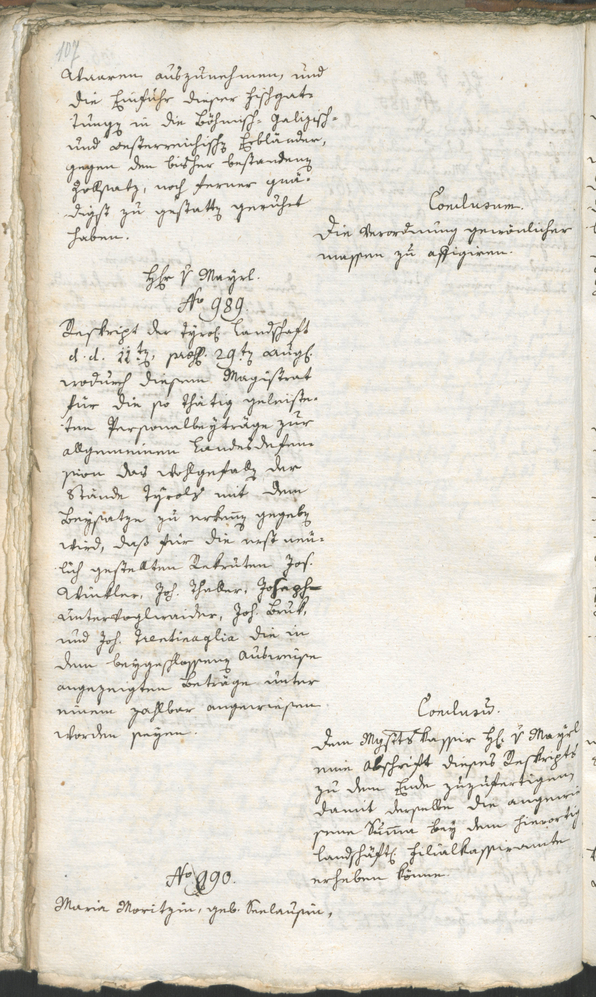 107
Waaren auszunehmen, und
die Einfuhr dieser Fischgat-
tungen in die Böhmisch- Galizisch-
und Oesterreichische Erbländer,
gegen den bisher bestandenen
Zollsatz, noch ferner gnä-
digst zu gestatten geruhet
haben.
Conclusum.
Die Verordnung gewönlicher
massen zu affigiren.
Hr v Mayrl.
No 989.
Reskript der Tyrol. Landschaft
d. d. 11ten, praes. 29ten Aug.
wodurch diesem Magistrat
für die so thätig geleiste-
ten Personalbeyträge zur
allgemeinen Landesdefen-
sion das Wohlgefallen der
Stände Tyrols mit dem
Beysatze zu erkennen gegeben
wird, daß für die erst neu-
lich gestellten Rekruten Jos.
Winkler, Joh. Thaler, Joseph
Untervoglwaider, Joh. Bruk,
und Joh. Trentinaglia die in
dem beygeschlossenen Ausweise
angezeigten Beträge unter
einem zahlbar angewiesen
worden seyen.
Conclusum.
Dem Hr v Mayrl
eine Abschrift dieses Reskripts
zu dem Ende zuzufertigen
damit derselbe die angewie-
sene Summa bey dem hierortig
landschäftl. Filialkassieramte
erheben könne.
No 990.
Maria Moritzin, geb. Seelausin,